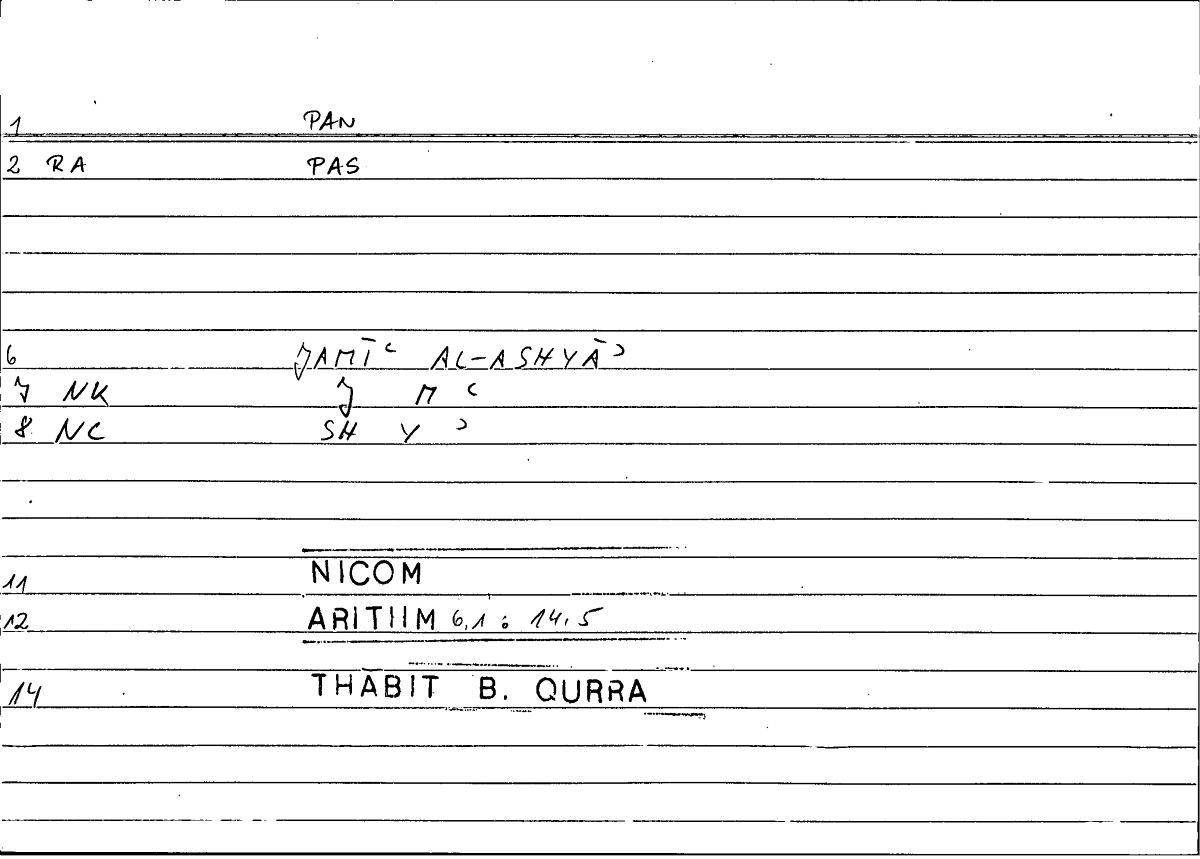 1 PAN
2 RA PAS
6 JAMĪʿ AL-ASHYĀʾ
7 NK J M ʿ
8 NC SH Y ʾ
11 NICOM
12 ARITHM 6,1 : 14,5
14 THĀBIT B. QURRA